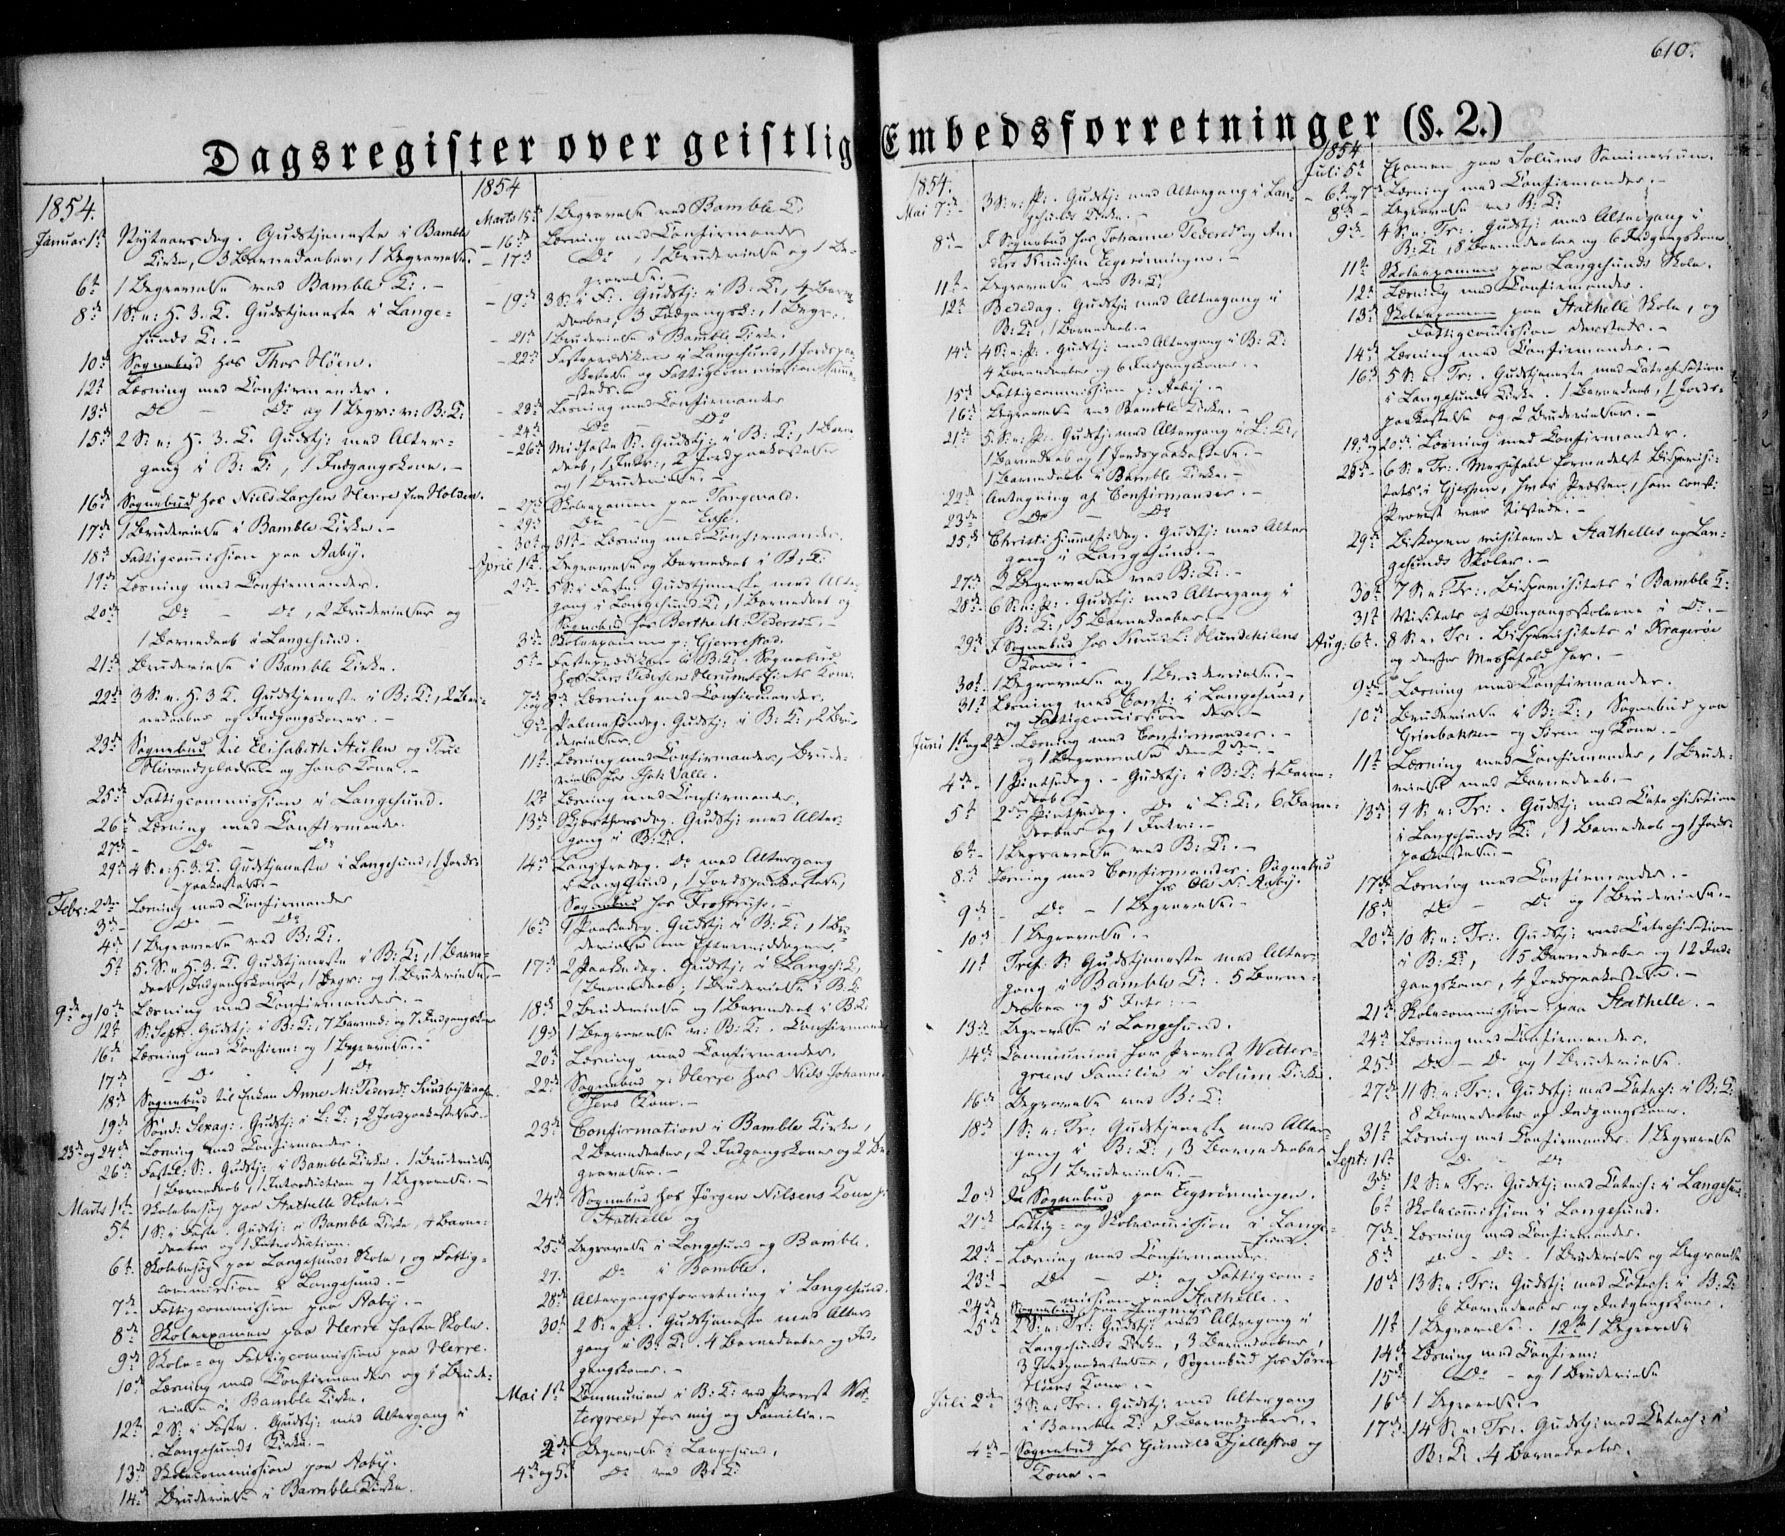 610.
Dagsregister over geistlig Embedsforretninger (§. 2.)
1854.
Januar 1ste Nytaarsdag. Gudstjeneste i Bamble
Kirke, 3 Barnedaaber, 1 Begravelse.
6te 1 Begravelse ved Bamble K: -
8de 1 S: e: H. 3. K. Gudstjeneste i Lange-
sunds K: -
10de Sognebud hos Thor Moen.
12te Læsning med Confirmander.
13de Do - Do og 1 Begr: v: B: K:
15de 2 S: e: H. 3. K. Gudstj: med Alter-
gang i B: K:, 1 Indgangskone. -
16de Sognebud hos Niels Larsen Herre
17de 1 Brudevielse i Bamble Kirke. -
18de Fattigcommission paa Aaby.
19de Læsning med Confirmander.
20de Do - Do, 2 Brudevielser og
1 Barnedaab i Langesund.
21de Brudevielse i Bamble Kirke.
22de 3 S: e: H. 3 K. Gudstjeneste i B: K:, 2 Bar-
nedaaber og Indgangskoner. -
23de Sognebud til Elisabeth
og hans Kone. -
25de Fattigcommission i Langesund.
26de Læsning med Confirmander.
27de - Do - Do
29de 4 S: e: H. 3. K. Gudstjeneste i Langesund, 1 Jords-
paakastelse. -
Febr: 2den Læsning med Confirmander
3de - Do - Do
4de 1 Begravelse ved B: K:.
5te 5 S: e H. 3. K. Gudstjeneste i B: K:, 1 Barne-
daab, Indgangskone, 1 Begr: og 1 Brudevielse. -
9de og 10de Læsning med Confirmander. -
12te S: Sept: Gudstj: i B: K:, 7 Barned: og 7 Indgangskoner
16de Læsning med Confirm: og 1 Begravelse.
17de - Do 1 Do
18de Sognebud til Enken Anne M: Pedersd:
19de Sønd: Sexag: Gudstj: i L: K:, 2 Jordpaakastelser.
23de og 24de Læsning med Confirmander.
26de Fastel: S: Gudstj: i Bamble Kirke, 1 Brudevielse
1 Barnedaab, 1 Introduction og 1 Begravelse. -
Marts 1ste Skolebesøg paa Stathelle Skole. -
5te 1 S: i Faste. Gudstj: i Bamble Kirke, 4 Barne-
daaber og 1 Introduction.
6te Skolebesøg paa Langesunds Skole, og Fattig-
commission i Langesund. -
7de Fattigcommission paa Aaby. -
8de Skoleexamen paa Herre faste Skole.
9de Skole- og Fattigcommission paa Herre.
10de Læsning med Confirmander og 1 Brude-
vielse i Bamble Kirke.
12te 2 S: i Faste. Gudstj: med Altergang i
Langesunds Kirke. -
13de Skolecommission paa Aaby.
14de Brudevielse i Bamble Kirke.
1854
Marts 15de 1 Begravelse ved Bamble K:
- 16de Læsning med Confirmander
- 17de Do, 1 Brudevielse og 1 Be-
gravelse.
- 19de 3 S: i F: Gudstj: i B: K:, 4 Barne-
daaber, 3 Indgangsk:, 1 Begr:
- 21de 1 Brudevielse i Bamble Kirke.
- 22de Fasteprædiken i Langesund, 1 Jordspaa-
kastelse og Fattigcommission samme-
steds.
- 23de Læsning med Confirmander
- 24de Do - Do
- 26de Midfaste S: Gudstj: i B: K:, 1 Barne-
daab, 1 Intr:, 2 Jordpaakastelser
og 1 Brudevielse. -
- 27de Skoleexamen paa Tangvald.
- 29de Do - -
- 30te og 31te Læsning med Confirmander.
April 1ste Begravelse og Barnedaab i B: K:
2den 5 S: i Faste. Gudstjeneste med Alter-
gang i Langesunds K:, 1 Barnedaab og
Sognebud hos Berthe M: Pedersd: -
3de Skoleexamen p: Gjerrestad.
5te Fasteprædiken i B: K:. Sognebud
hos Lars Pedersen Kone.
7de og 8de Læsning med Confirmander.
9de Palmesøndag. Gudstj: i B: K:, 2 Bru-
devielser.
11te Læsning med Confirmander, Brude-
vielse hos Valle.
12te Læsning med Confirmander.
13de Skjærthorsdag. Gudstj: med Alter-
gang i B: K:.
14de Langfredag. Do med Altergang
i Langesund, 1 Jordspaakastelse,
Sognebud hos -
16de 1 Paaskedag. Gudstj: i B: K:, 1 Bru-
devielse om Eftermiddagen.
17de 2 Paaskedag. Gudstj: i Langes: K:,
1 Barnedaab, 1 Brudevielse i B: K:
18de 2 Brudevielser og 1 Barnedaab i B: K:
19de 1 Begravelse v: B: K:. Confirmander
20de Læsning med Confirmander.
22de Sognebud p: Herre hos Niels Johanne-
sens Kone. -
23de Confirmation i Bamble Kirke,
2 Barnedaaber, 2 Indgangskoner og 2 Be-
gravelser. -
24de Sognebud hos Jørgen Nilsens Kone p:
Stathelle og
25de Begravelse i Langesund og Bamble.
27. Do i Bamble.
28de Altergangsforretning i Langesund.
30te 2 S: e: P: Gudstjeneste med Alter-
gang i B: K: 4 Barnedaaber og Ind-
gangskoner. -
Mai 1ste Communion i B: K: ved Provst Wet-
tergreen for mig og Familie. -
2den Begravelse i Langesund.
4de og 5te Do ved B: K:
1854.
Mai 7de 3 S: e: P: Gudstj: med Altergang i Lan-
gesunds Kirke. -
8de Sognebud hos Johanne Pedersd: og An-
ders Knudsen
11te Begravelse ved B: K:
12te Bededag. Gudstj: med Altergang i
B: K:, 1 Barnedaab. -
14de 4 S: e: P: Gudstj: med Altergang i B: K:
4 Barnedaaber og 6 Indgangskoner. -
15de Fattigcommission p: Aaby. -
16de Begravelse ved Bamble Kirke. -
21de 5 S: e: P: Gudstj: med Altergang i L: K:,
1 Barnedaab og 1 Jordspaakastelse. -
1 Barnedaab i Bamble Kirke. -
22de Antagning af Confirmander. -
23de Do - Do
25de Christi Himmelf: dag. Gudstj: med Alter-
gang i Langesund. -
27de 2 Begravelser ved B: K:. -
28de 6 S: e: P: Gudstj: med Altergang i
B: K:, 5 Barnedaaber. -
29de Sognebud hos Knud
Kone. -
30te 1 Begravelse og 1 Brudevielse. -
31te Læsning med Conf: i Langesund,
og Fattigcommission der. -
Juni 1ste og 2den Læsning med Confirmander. -
og 1 Begravelse den 2den
4de 1 Pintsedag. - Gudstj: i B: K: 4 Barne-
daab.
5te 2den Pintsedag. Do i L: K:, 6 Barne-
daaber og 1 Intr: -
6te 1 Begravelse ved B: K:. -
8de Læsning med Confirmander. Sognebud
hos Ole N: Aaby.
9de - Do - 1 Begravelse. -
10de 1 Begravelse. -
11te Tref: S: Gudstjeneste med Alter-
gang i Bamble K: 5 Barne-
daaber og 5 Intr: -
13de Begravelse i Langesund.
14de Communion hos Provst Wetter-
greens Familie i Solum Kirke.
16de Begravelse ved B: K:
18de 1 S: e: Tr: Gudstjeneste med Alter-
gang i B: K:, 3 Barnedaaber
og 1 Brudevielse. -
20de Sognebud paa
21de Fattig- og Skolecommission i Lange-
sund
22de Læsning med Confirmander.
23de Do - Do og Fattigcom-
mission paa Stathelle. -
24de Sognebud paa
25de 2 S: e: Tr: Gudstj: med Altergang i
Langesunds Kirke, 3 Barnedaaber,
3 Jordpaakastelser, Sognebud hos Søren
Moens Kone. -
Juli 2den 3 S: e: Tr: Gudstj: med Altergang
i Bamble K: 8 Barnedaaber. -
4de Sognebud hos Gunuld Fjellestad og
Kone. -
1854
Juli 5te Examen paa Solums Seminarium.
- 6te og 7de Læsning med Confirmander. -
8de - Begravelse ved B: K:
9de - 4 S: e: Tr: Gudstj: med Altergang i
B: K:, 8 Barnedaaber og 6 Indgangskoner
11te Skoleexamen paa Langesunds Skole.
12te Læsning med Confirmander.
13de Skoleexamen paa Stathelle Skole, og
Fattigcommission dersteds. -
14de Læsning med Confirmander. -
16de 5 S: e: Tr: Gudstjeneste med Catechisation
i Langesunds Kirke. 1 Barnedaab, 1 Jords-
paakastelse og 2 Brudevielser. -
19de og 20de Læsning med Confirmander.
23de 6 S: e Tr: Messefald formedelst Bispevisi-
tats i Gjerpen, hvor Præsten, som const:
Provst var tilstede. -
29de Biskopen visiterede Stathelles og Lan-
gesunds Skoler. -
30te 7 S: e: Tr: Bispevisitats i Bamble K:
31te Visitats af Omgangsskolerne i Do. -
Aug: 6te 8 S: e: Tr: Bispevisitats i Kragerøe
og derfor Messefald her. -
9de - Læsning med Confirmander.
10de Brudevielse i B: K:, Sognebud paa
Grinbakken og Kone. -
11te Læsning med Confirmander, 1 Brude-
vielse med Barnedaab. -
13de 9 S: e: Tr: Gudstj: med Catechisation
i Langesunds K:, 1 Barnedaab og 1 Jords-
paakastelse. -
17de Læsning med Confirmander. -
18de Do - Do og 1 Brudevielse. -
20de 10 S: e: Tr: Gudstj: med Catechisation
i B: K:, 15 Barnedaaber og 12 Ind-
gangskoner, 4 Jordspaakastelser. -
21de Skolecommission paa Stathelle. -
24de Læsning med Confirmander.
25de Do - Do og 1 Brudevielse.
27de 11 S: e: Tr: Gudstj: med Catech: i B: K:
8 Barnedaaber og Indgangskoner.
31te Læsning med Confirmander. 1 Begravelse
Sept: 1ste Do - Do
3de 12 S: e Tr: Gudstj: med Catech: i Langesund.
6te Skolecommission i Langesund.
7de - Læsning med Confirmander.
8de Do - Do - 1 Brudevielse og Begravelse
10de 13 S: e: Tr: Gudstj: med Catech: i B: K:
6 Barnedaaber og Indgangskoner.
11te 1 Begravelse. 12te 1 Begravelse
14de Læsning med Confirm:
15de Do - og 1 Brudevielse
16de 1 Begravelse. -
17de 14 S: e: Tr: Gudstj: med Catech: i
B: K: 4 Barnedaaber.